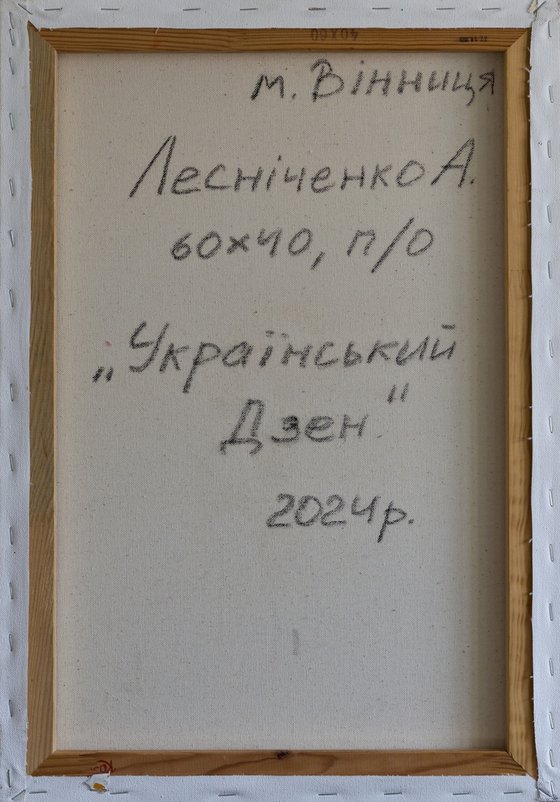 м. Вінниця
Лесніченко А.
60х40, п/о
„Український
Дзен"
2024р.